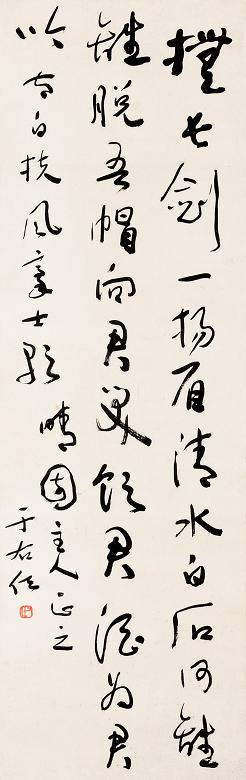 撫長劍一揚眉清水白石何離
離脫吾帽向君笑飲君酒為君
吟太白扶風豪士歌晴園主人正之
于右任